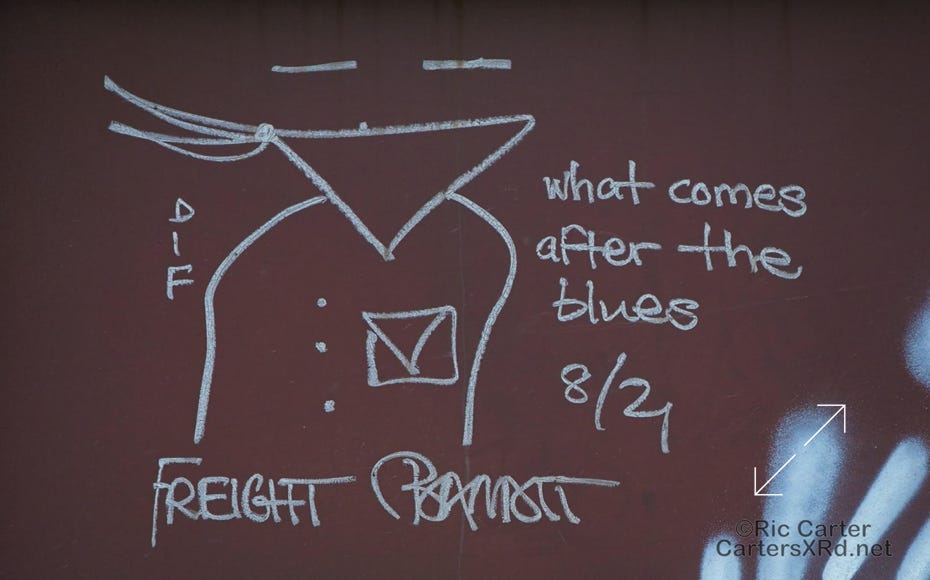 what comes
after the
blues
8/21
DIF
FREIGHT BANDIT
©Ric Carter
CartersXRd.net